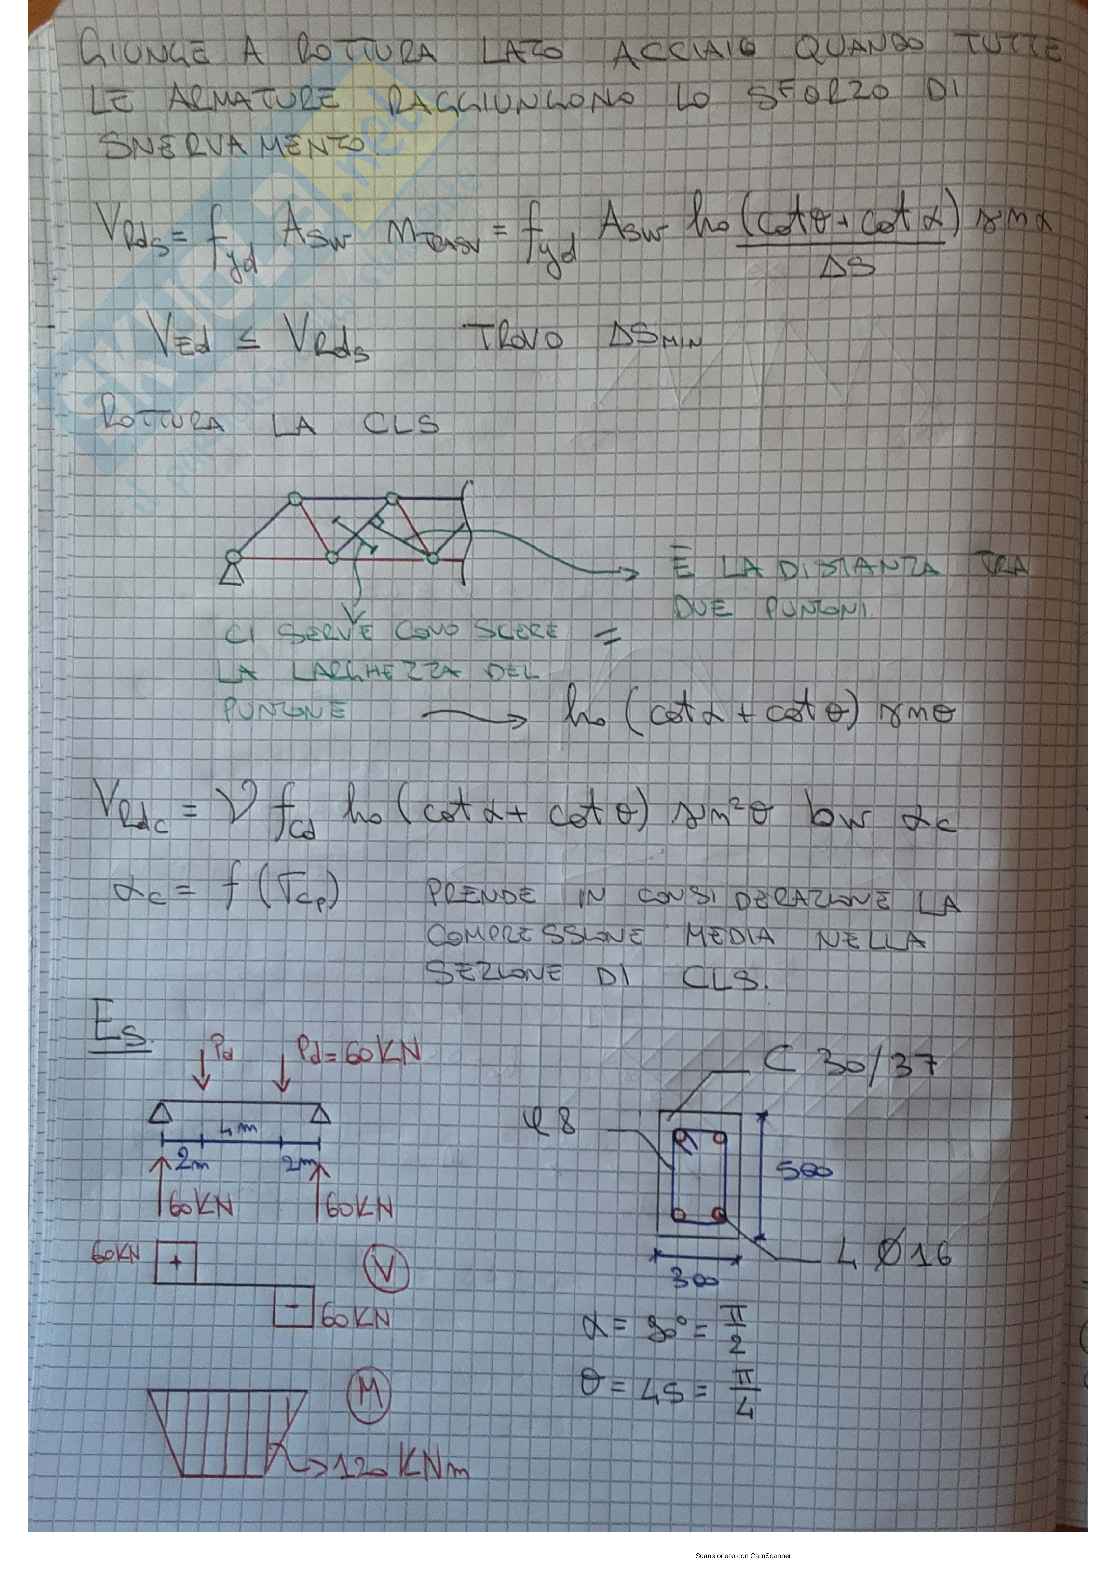 GIUNGE A ROTTURA LATO ACCIAIO QUANDO TUTTE
LE ARMATURE RAGGIUNGONO LO SFORZO DI
SNERVAMENTO.
V_Rds = f_yd A_sw = f_yd A_sw h_o (cot θ + cot α) / ΔS sin α
V_Ed ≤ V_Rds TROVO ΔS_MIN
ROTTURA LA CLS
È LA DISTANZA TRA
DUE PUNTONI.
CI SERVE CONOSCERE =
LA LARGHEZZA DEL
PUNTONE → h_o (cot α + cot θ) sin θ
V_Rdc = ν f_cd h_o (cot α + cot θ) sin²θ bw α_c
α_c = f (σ_cp) PRENDE IN CONSIDERAZIONE LA
COMPRESSIONE MEDIA NELLA
SEZIONE DI CLS.
Es.
Pd Pd = 60KN
4m
2m 2m
60KN 60KN
60KN + V
- 60KN
M
120 KNm
C 30/37
φ8
500
4 Ø16
300
α = 90° = π/2
θ = 45 = π/4
SKUOLA.net